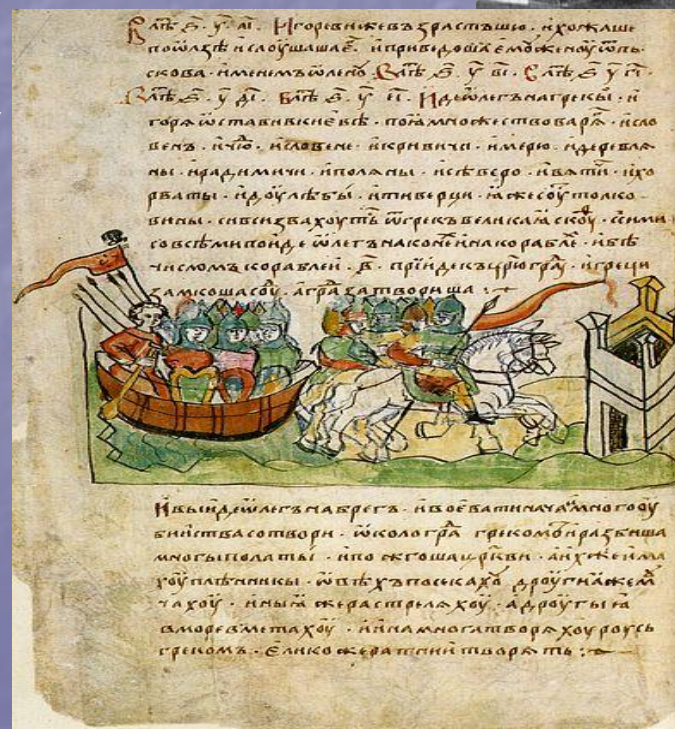 В лѣ҇т ҂ѕ҃. у҃. аі҃. Игореви же възрастъшю. и хожаше
по ѡлзѣ и слоушаша е҇. и приведоша емоу женоу ѿ пь
скова. именемъ ѡлено҇. В лѣ҇т ҂ѕ҃. у҃ ві҃. В лѣ҇т ҂ѕ҃ у҃ гі҃.
В лѣ҇т ҂ѕ҃. у҃ ді҃. В лѣ҇т ҂ѕ҃ у҃ еі҃. Иде ѡлегъ на грекы. и
горѧ ѡставив кіевѣ. поѧ множество варѧ҇. и сло
венъ. и чю҇. и словене. и кривичи. и мерю. и деревлѧ
ны. и радимичи. и полѧны. и сѣверо. и вѧтич҇и. и хо
рваты. и доулѣбы. и тиверци. ꙗже соу҇ толко
вины. си вси звахоуть ѿ грекъ великаꙗ скоу҇. с сими
со всѣми поиде ѡлегъ на коне҇х и на корабле҇. и бѣ
числомъ кораблеи. в҃. прїиде къ ц҃рюгра҇. и греци
замкоша соу҇. а гра҇ затвориша :~
И выиде ѡлегъ на брегъ. и воевати нача. и много оу
бииства сотвори. ѡколо гра҇ грекомъ. и разбиша
многы полаты. и пожгоша ц҃ркви. а ихже има
хоу плѣнникы. ѡвѣхъ посекахо҇. дроугиꙗ же м҇
чахоу. иныꙗ же растрелѧхоу. а дроугыꙗ
в море вметахоу. и ина многа творѧхоу роусь
грекомъ. елико же ратнии творѧть :~